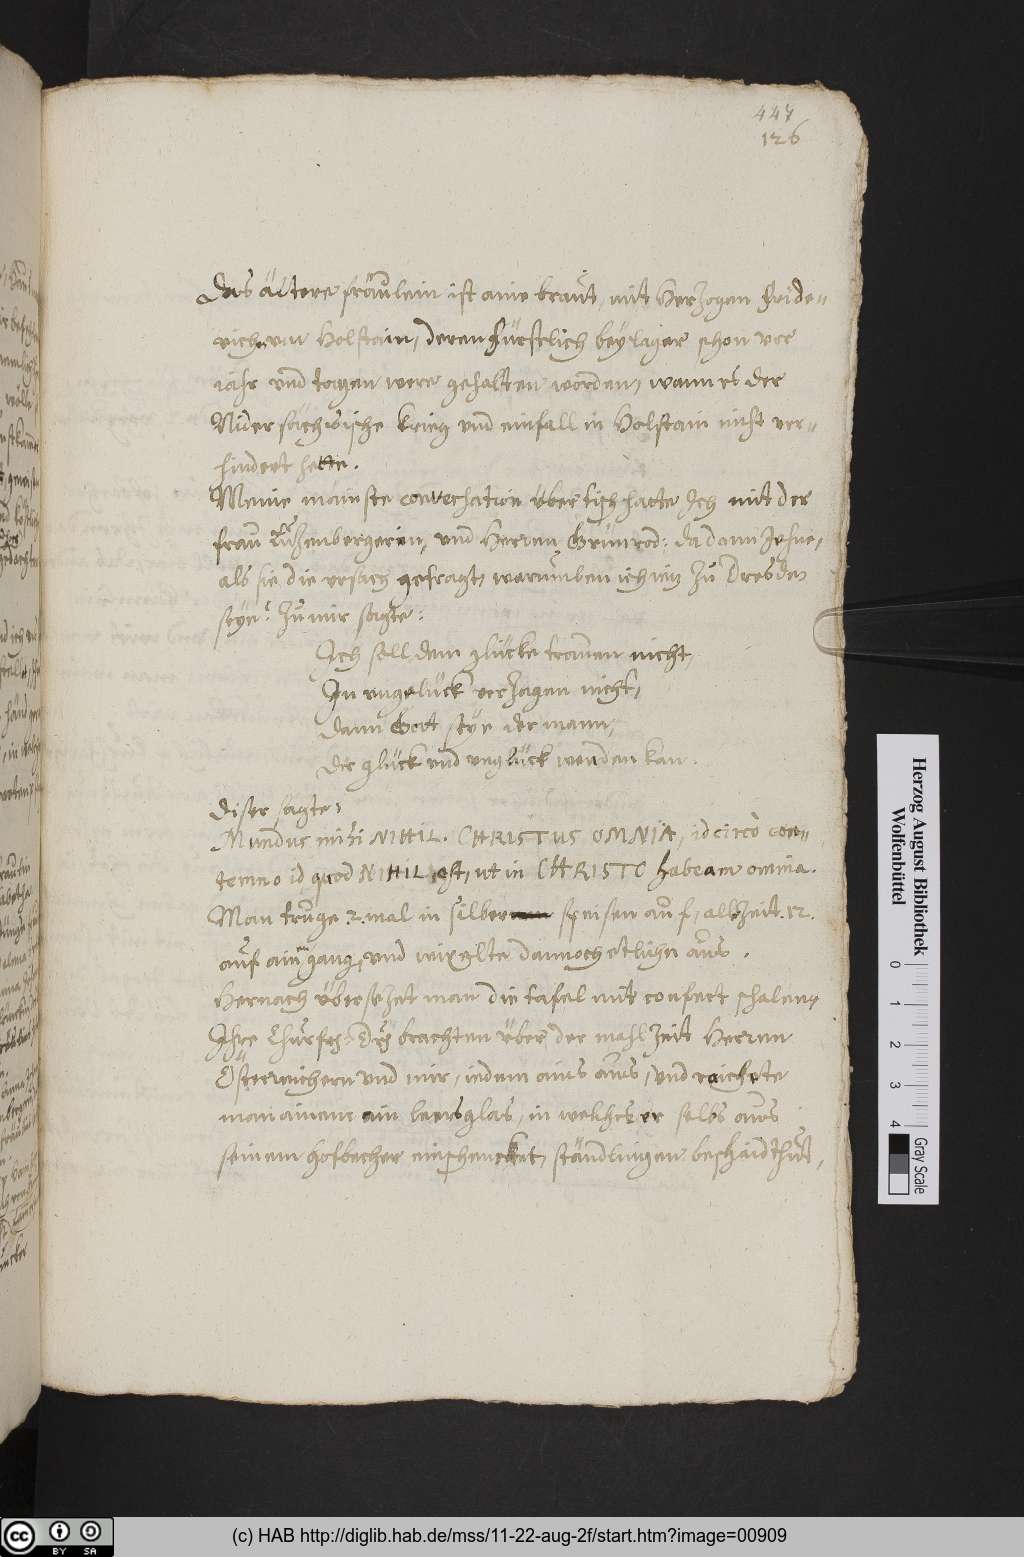 447
126
Das ältere fräulein ist aine braut, mit Herzogen Fride-
rich von Holstain, deren Fürstlich beylager schon vor
jahr und tagen were gehalten worden, wann es der
Nidersächsische krieg und einfall in Holstain nicht ver-
hindert hette.
Meine mainste conversation über tisch hatte Ich mit der
frau Lüzenbergerin, und Herren Grünrod: da dann Jehne,
als sie die ursach gefragt, warumben ich iez zu Dresden
seye? zu mir sagte:
Ich soll dem glücke trauen nicht,
In ungelück verzagen nicht,
dann Gott seye der mann,
der glück und unglück wenden kan.
diser sagte,
Mundus mihi NIHIL. CHRISTUS OMNIA, idcirco con-
temno id quod NIHIL est, ut in CHRISTO habeam omnia.
Man truge 2. mal in silber speisen auf, allzeit 12.
auf ain gang, und wixelte dannoch etliche aus.
Hernach übersezet man die tafel mit confect schalen,
Ihre Churfr: Dr: brachten über der mahlzeit Herren
Österreichern und mir, indem ains aus, und raichete
man ainem ain beersglas, in welches er selbs aus
seinem hofbecher einschencket, ständlingen beschaid thut,
Herzog August Bibliothek
Wolfenbüttel
0 1 2 3 4
Gray Scale
cc BY SA
(c) HAB http://diglib.hab.de/mss/11-22-aug-2f/start.htm?image=00909